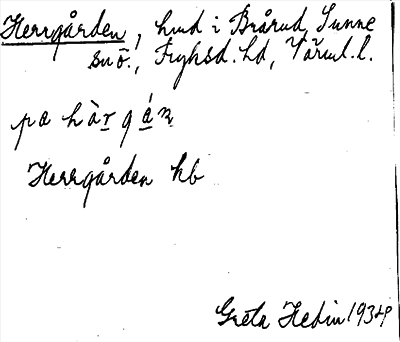 Herrgården, hmd i Brårud, Sunne
snö., Fryksd. hd, Värml. l.
pa hàrgán
Herrgården hb
Greta Hedin 1934